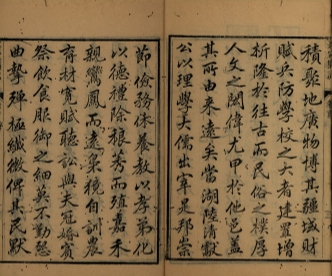 積聚地廣物博其疆城財
賦兵防學校之大者建置增
析隆於往古而民俗之樸厚
人文之閎偉尤甲於他邑蓋
其所由來遠矣當湖陸清獻
公以理學大儒出宰是邦崇
節儉務休養教以孝弟化
以德禮除稂莠而殖嘉禾
親鸞鳳而遠梟獍自訓農
育材寬賦聽訟與夫冠婚賓
祭飲食服御之細莫不勤懇
曲摯殫極纖微俾其民默